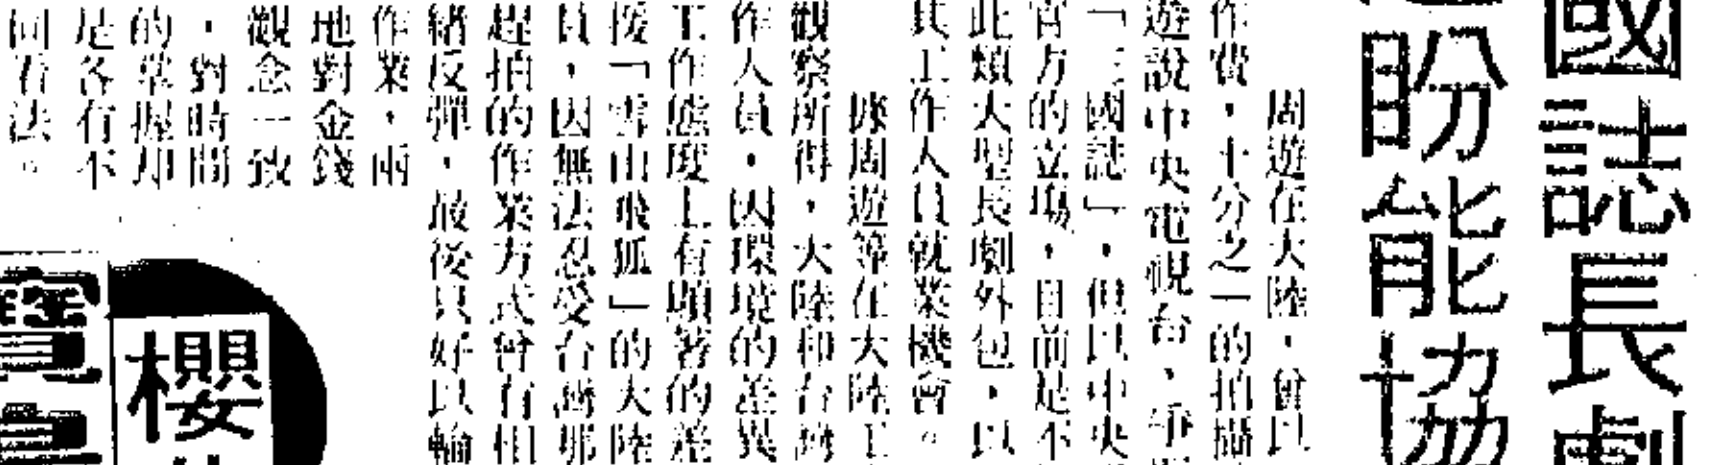 國誌長劇
盼能協
周遊在大陸，曾以
作費，十分之一的拍攝
遊說中央電視台，爭
「三國誌」，但以中央
官方的立場，目前是不
此類大型長劇外包，以
其工作人員就業機會。
據周遊等在大陸工
觀察所得，大陸和台灣
作人員，因環境的差異
工作態度上有顯著的差
援「雪山飛狐」的大陸
員，因無法忍受台灣那
趕拍的作業方式曾有相
緒反彈，最後只好以輪
作業，兩
地對金錢
觀念一致
，對時間
的掌握却
是各有不
同看法。
櫻